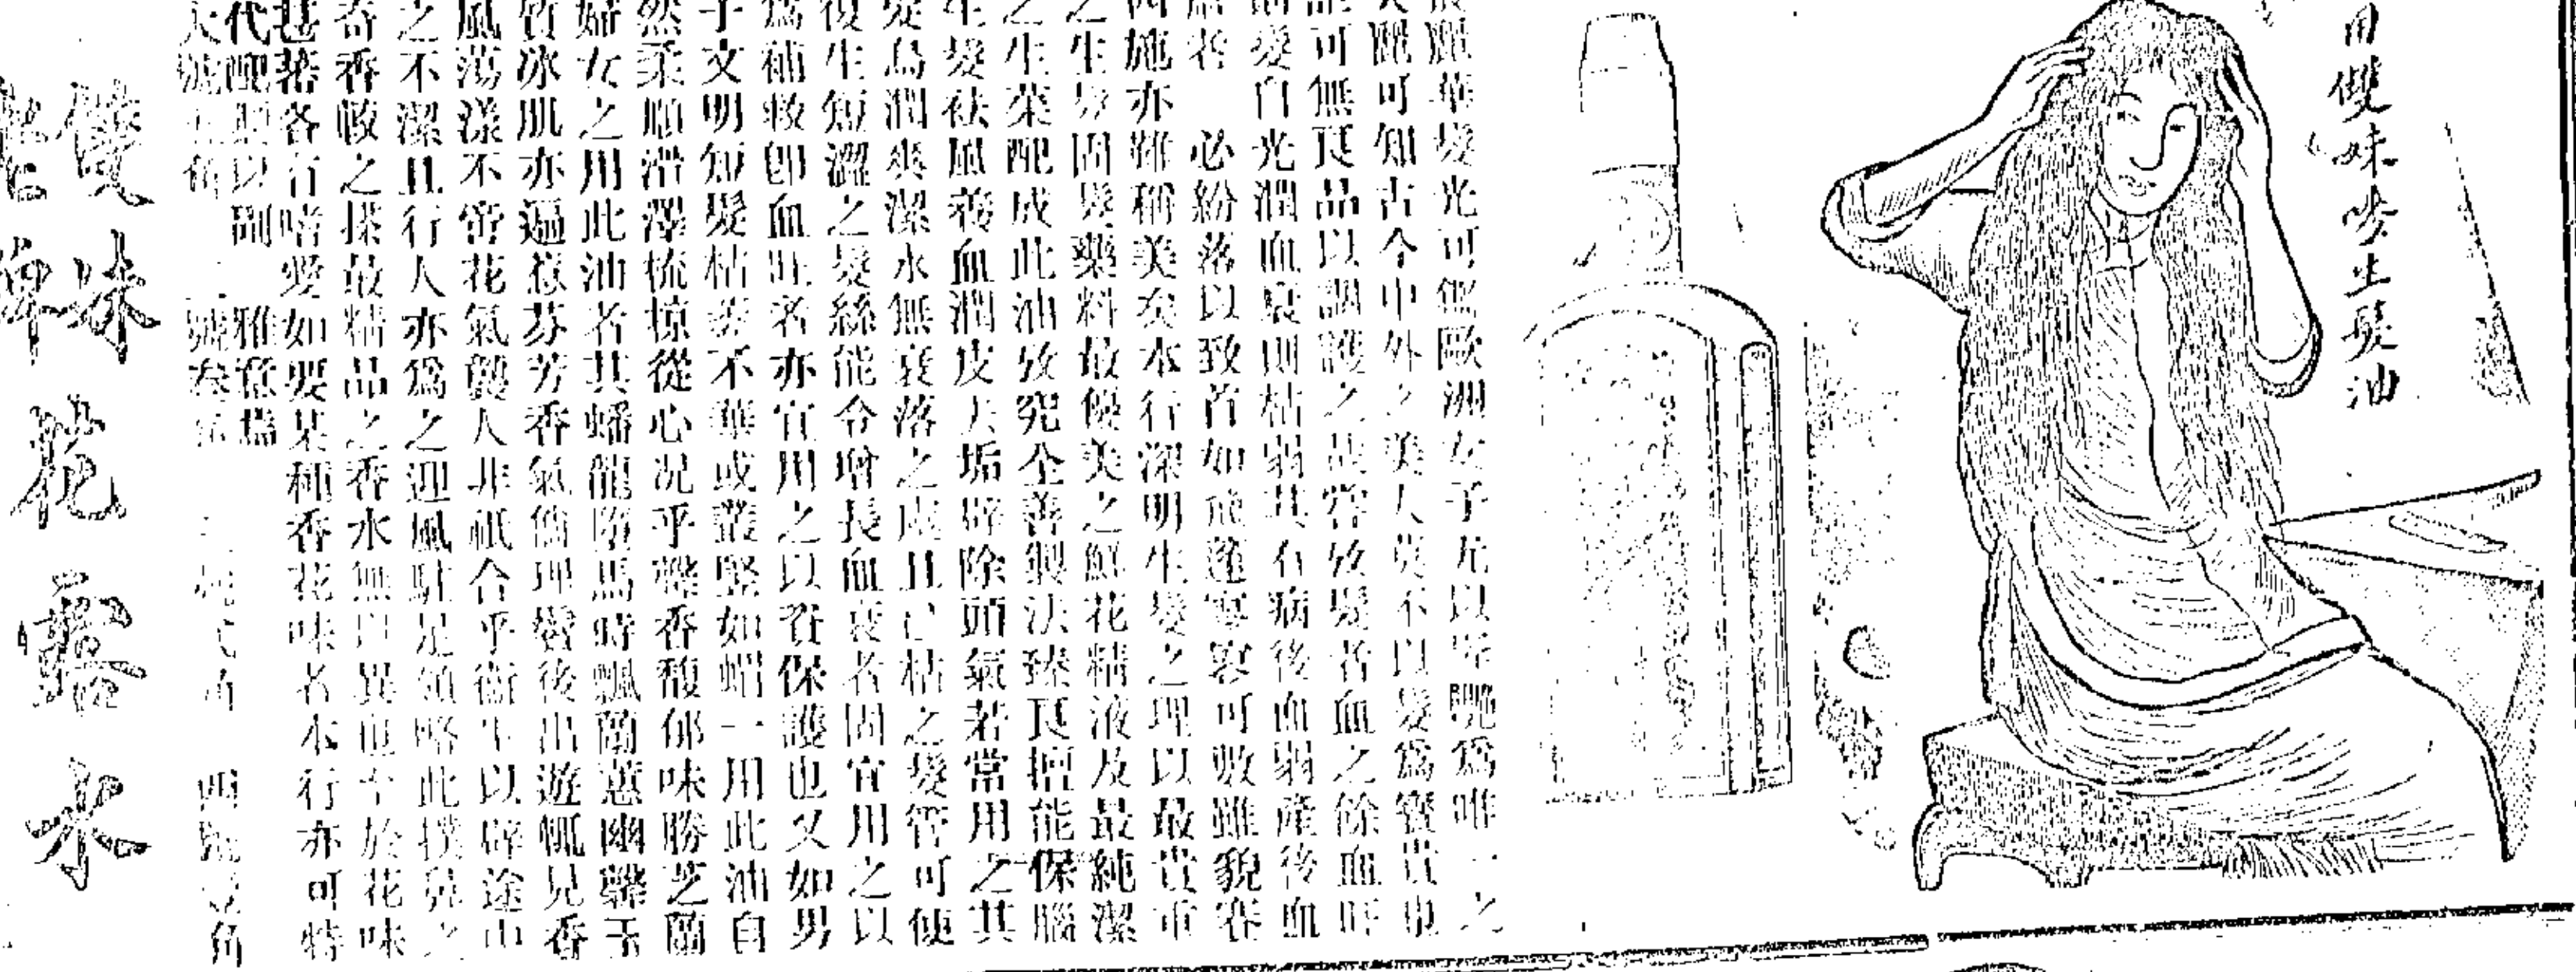 用雙妹嘜生髮油
麗華髮光可鑑歐洲女子尤以為唯一之
麗可知古今中外之美人莫不以髮為寶貴
可無良品以調護之故當攷髮者血之餘血旺
髮自光潤血衰則枯弱其有病後血弱產後血
者必紛落以致首如飛蓬寒可數雖貌賽
西施亦難稱美矣本行深明生髮之理以最貴重
之生髮固髮藥料最優美之鮮花精液及最純潔
之生菜配成此油攷究全善製法臻良擅能保腦
生髮祛風養血潤皮去垢辟除頭氣若常用之其
髮烏潤爽潔永無衰落之虞且已枯之髮管可使
復生短澀之髮絲能令增長血衰者固宜用之以
為補救卽血旺者亦宜用之以資保護也又如男
子文明短髮枯萎不華或叢豎如蝟一用此油自
然柔順滑澤梳掠從心況乎馨香馥郁味勝芝蘭
婦女之用此油者其蟠龍墮馬時飄蘭蕙幽馨玉
質冰肌亦遍惹芬芳香氣倘理鬢後出遊輒見香
風蕩漾不啻花氣襲人非祇合乎衞生以辟途中
之不潔且行人亦為之迎風駐足領略此撲鼻之
奇香較之搽最精品之香水無以異也今於花味
甚蕃各有嗜愛如要某種香花味者本行亦可特
代配製以副雅意
大號五角 二號叁角 三號弍角 四號壹角
雙妹
花露水